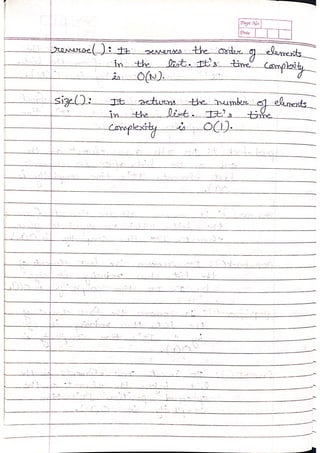 Page No.
Date
reverse(): It reverses the order of elements
in the list. It's time complexity
is O(N).
size(): It returns the number of elements
in the list. It's time
complexity is O(1).